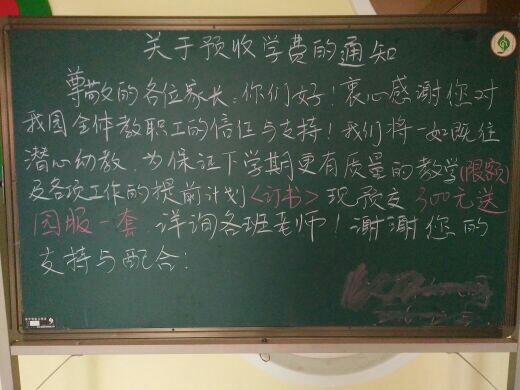 关于预收学费的通知
尊敬的各位家长:你们好!衷心感谢您对
我园全体教职工的信任与支持!我们将一如既往
潜心幼教,为保证下学期更有质量的教学(限额)
及各项工作的提前计划<订书>现预交300元送
园服一套.详询各班老师!谢谢您的
支持与配合!